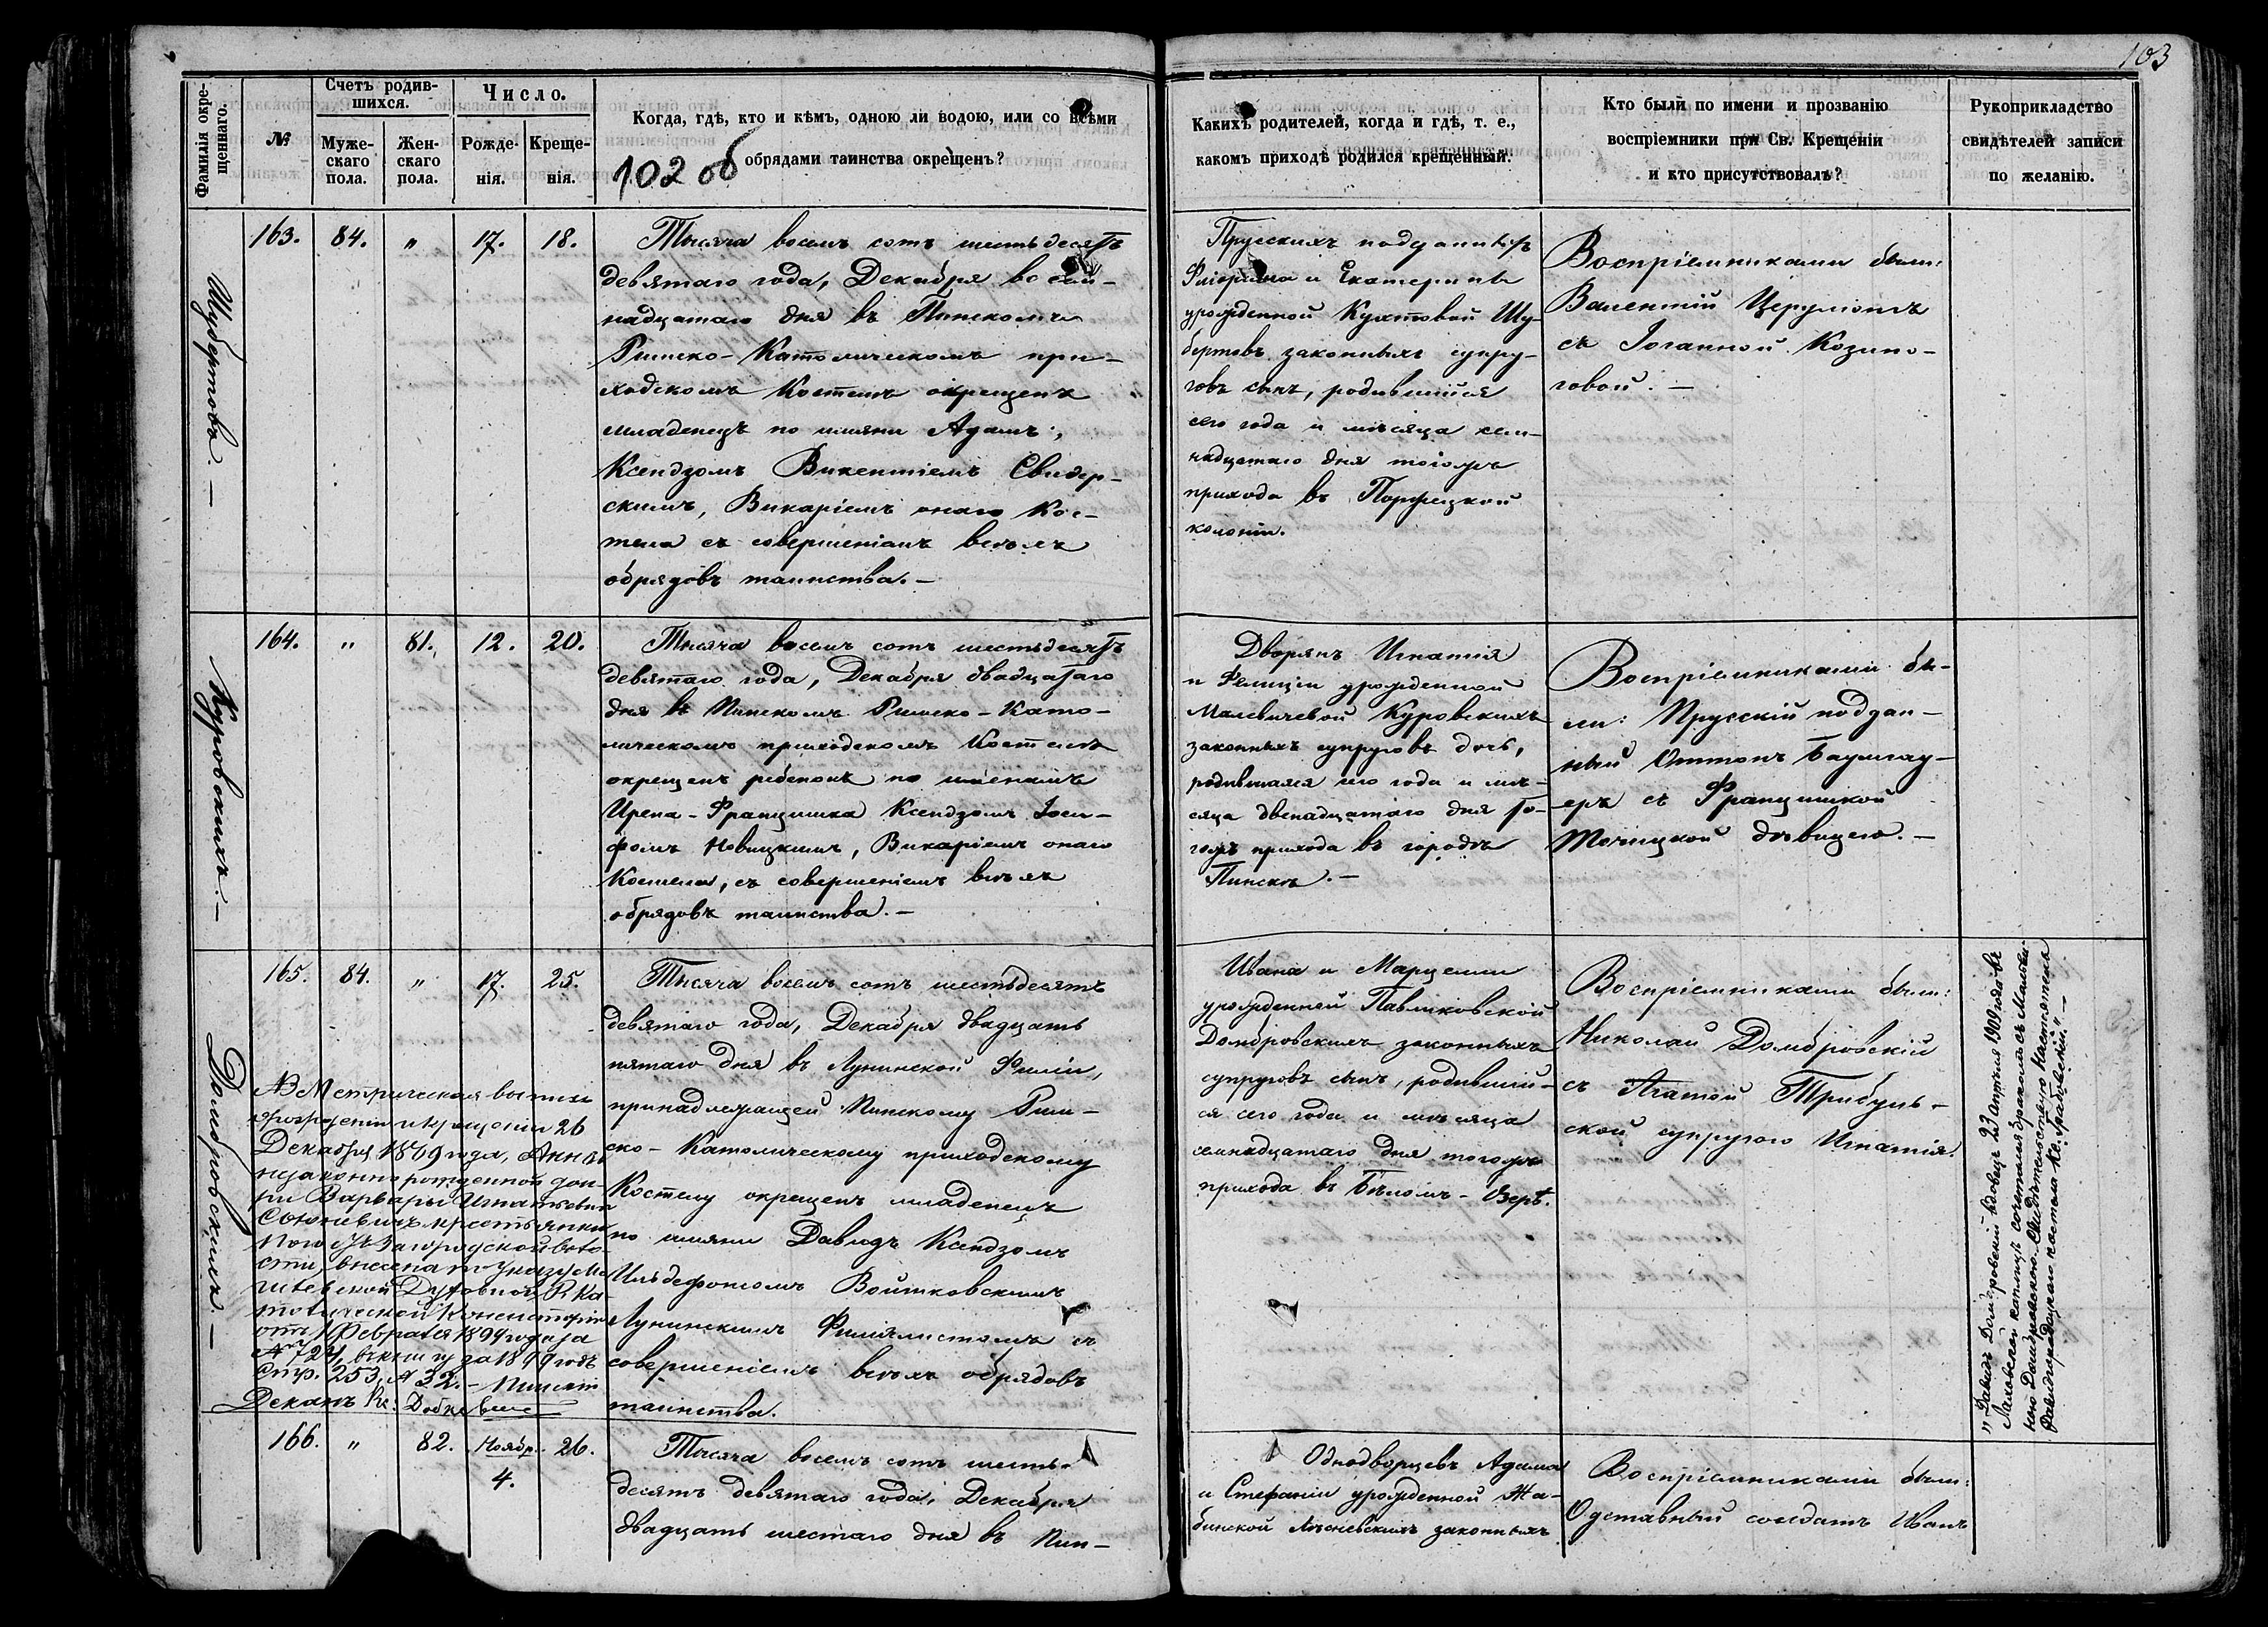 103
Фамилія окре-
щеннаго.
№
Счетъ родив-
шихся.
Муже-
скаго
пола.
Жен-
скаго
пола.
Число.
Рожде-
нія.
Креще-
нія.
Когда, гдѣ, кто и кѣмъ, одною ли водою, или со всѣми
обрядами таинства окрещенъ?
102 об
Какихъ родителей, когда и гдѣ, т. е.,
какомъ приходѣ родился крещенный.
Кто были по имени и прозванію
воспріемники при Св. Крещеніи
и кто присутствовалъ?
Рукоприкладство
свидѣтелей записи
по желанію.
Шубертовъ. —
163. 84. „ 17. 18.
Тысяча восемь сотъ шестьдесятъ
девятаго года, Декабря восем-
надцатаго дня въ Пинскомъ
Римско-Католическомъ при-
ходскомъ Костелѣ окрещенъ
младенецъ по имяни Адамъ,
Ксендзомъ Викентіемъ Свидер-
скимъ, Викаріемъ онаго Кос-
тела съ совершеніемъ всѣхъ
обрядовъ таинства. —
Прусскихъ подданныхъ
и Екатерины
урожденной Шу-
бертовъ законныхъ супру-
говъ сынъ, родившійся
сего года и мѣсяца сем-
надцатаго дня тогожъ
прихода въ
колоніи.
Воспріемниками были:
Валентій
съ Іоганной Козино-
говой. —
Куровскихъ. —
164. „ 81. 12. 20.
Тысяча восемь сотъ шестьдесятъ
девятаго года, Декабря двадцатаго
дня въ Пинскомъ Римско-Като-
лическомъ приходскомъ Костелѣ
окрещенъ ребенокъ по именамъ
Ирена-Францишка Ксендзомъ Іоси-
фомъ Новицкимъ, Викаріемъ онаго
Костела, съ совершеніемъ всѣхъ
обрядовъ таинства. —
Дворянъ Игнатія
и Фелиціи урожденной
Малевичевой Куровскихъ
законныхъ супруговъ дочь,
родившаяся сего года и мѣ-
сяца двенадцатаго дня то-
гожъ прихода въ городѣ
Пинскѣ. —
Воспріемниками бы-
ли: Прусскій поддан-
ный Оттонъ Баумгау-
еръ съ Францишкой
Точицкой дѣвицею. —
Домбровскихъ. —
165. 84. „ 17. 25.
Тысяча восемь сотъ шестьдесятъ
девятаго года, Декабря двадцать
пятаго дня въ Лунинской Филіи,
принадлежащей Пинскому Рим-
ско-Католическому приходскому
Костелу окрещенъ младенецъ
по имяни Давидъ Ксендзомъ
Ильдефонсомъ Войтковскимъ
Лунинскимъ Филіялистомъ съ
совершеніемъ всѣхъ обрядовъ
таинства.
Ивана и Марцелли
урожденной Павликовской
Домбровскихъ законныхъ
супруговъ сынъ, родившій-
ся сего года и мѣсяца
семнадцатаго дня тогожъ
прихода въ Бѣломъ-Озерѣ.
Воспріемниками были:
Николай Домбровскій
съ Агатой Трибуль-
ской супругою Игнатія.
„Давидъ Домбровскій вдовецъ 23 Апрѣля 1909 года въ
Лаховской каплицѣ сочетался бракомъ съ
ною Домбровскою. Свидѣтельствую Настоятель
Давидгородецкаго костела Кс.
NB Метрическая
о рожденіи и крещеніи 26
Декабря 1869 года, Анны
незаконнорожденной доч-
ри Варвары Игнатьевны
крестьянки
Загородской воло-
сти, внесена по Указу Мо-
гилевской Духовной Р. Ка-
толической Консисторіи
отъ 1 Февраля 1899 года за
№ 724, въ книгу за 1899 годъ
стр. 253, № 32. — Пинскій
Деканъ Кс.
166. „ 82. Ноябр. 4. 26.
Тысяча восемь сотъ шесть-
десятъ девятаго года, Декабря
двадцать шестаго дня въ Пин-
Однодворцевъ Адама
и Стефаніи урожденной Жа-
бинской законныхъ
Воспріемниками были:
Отставный солдатъ Иванъ